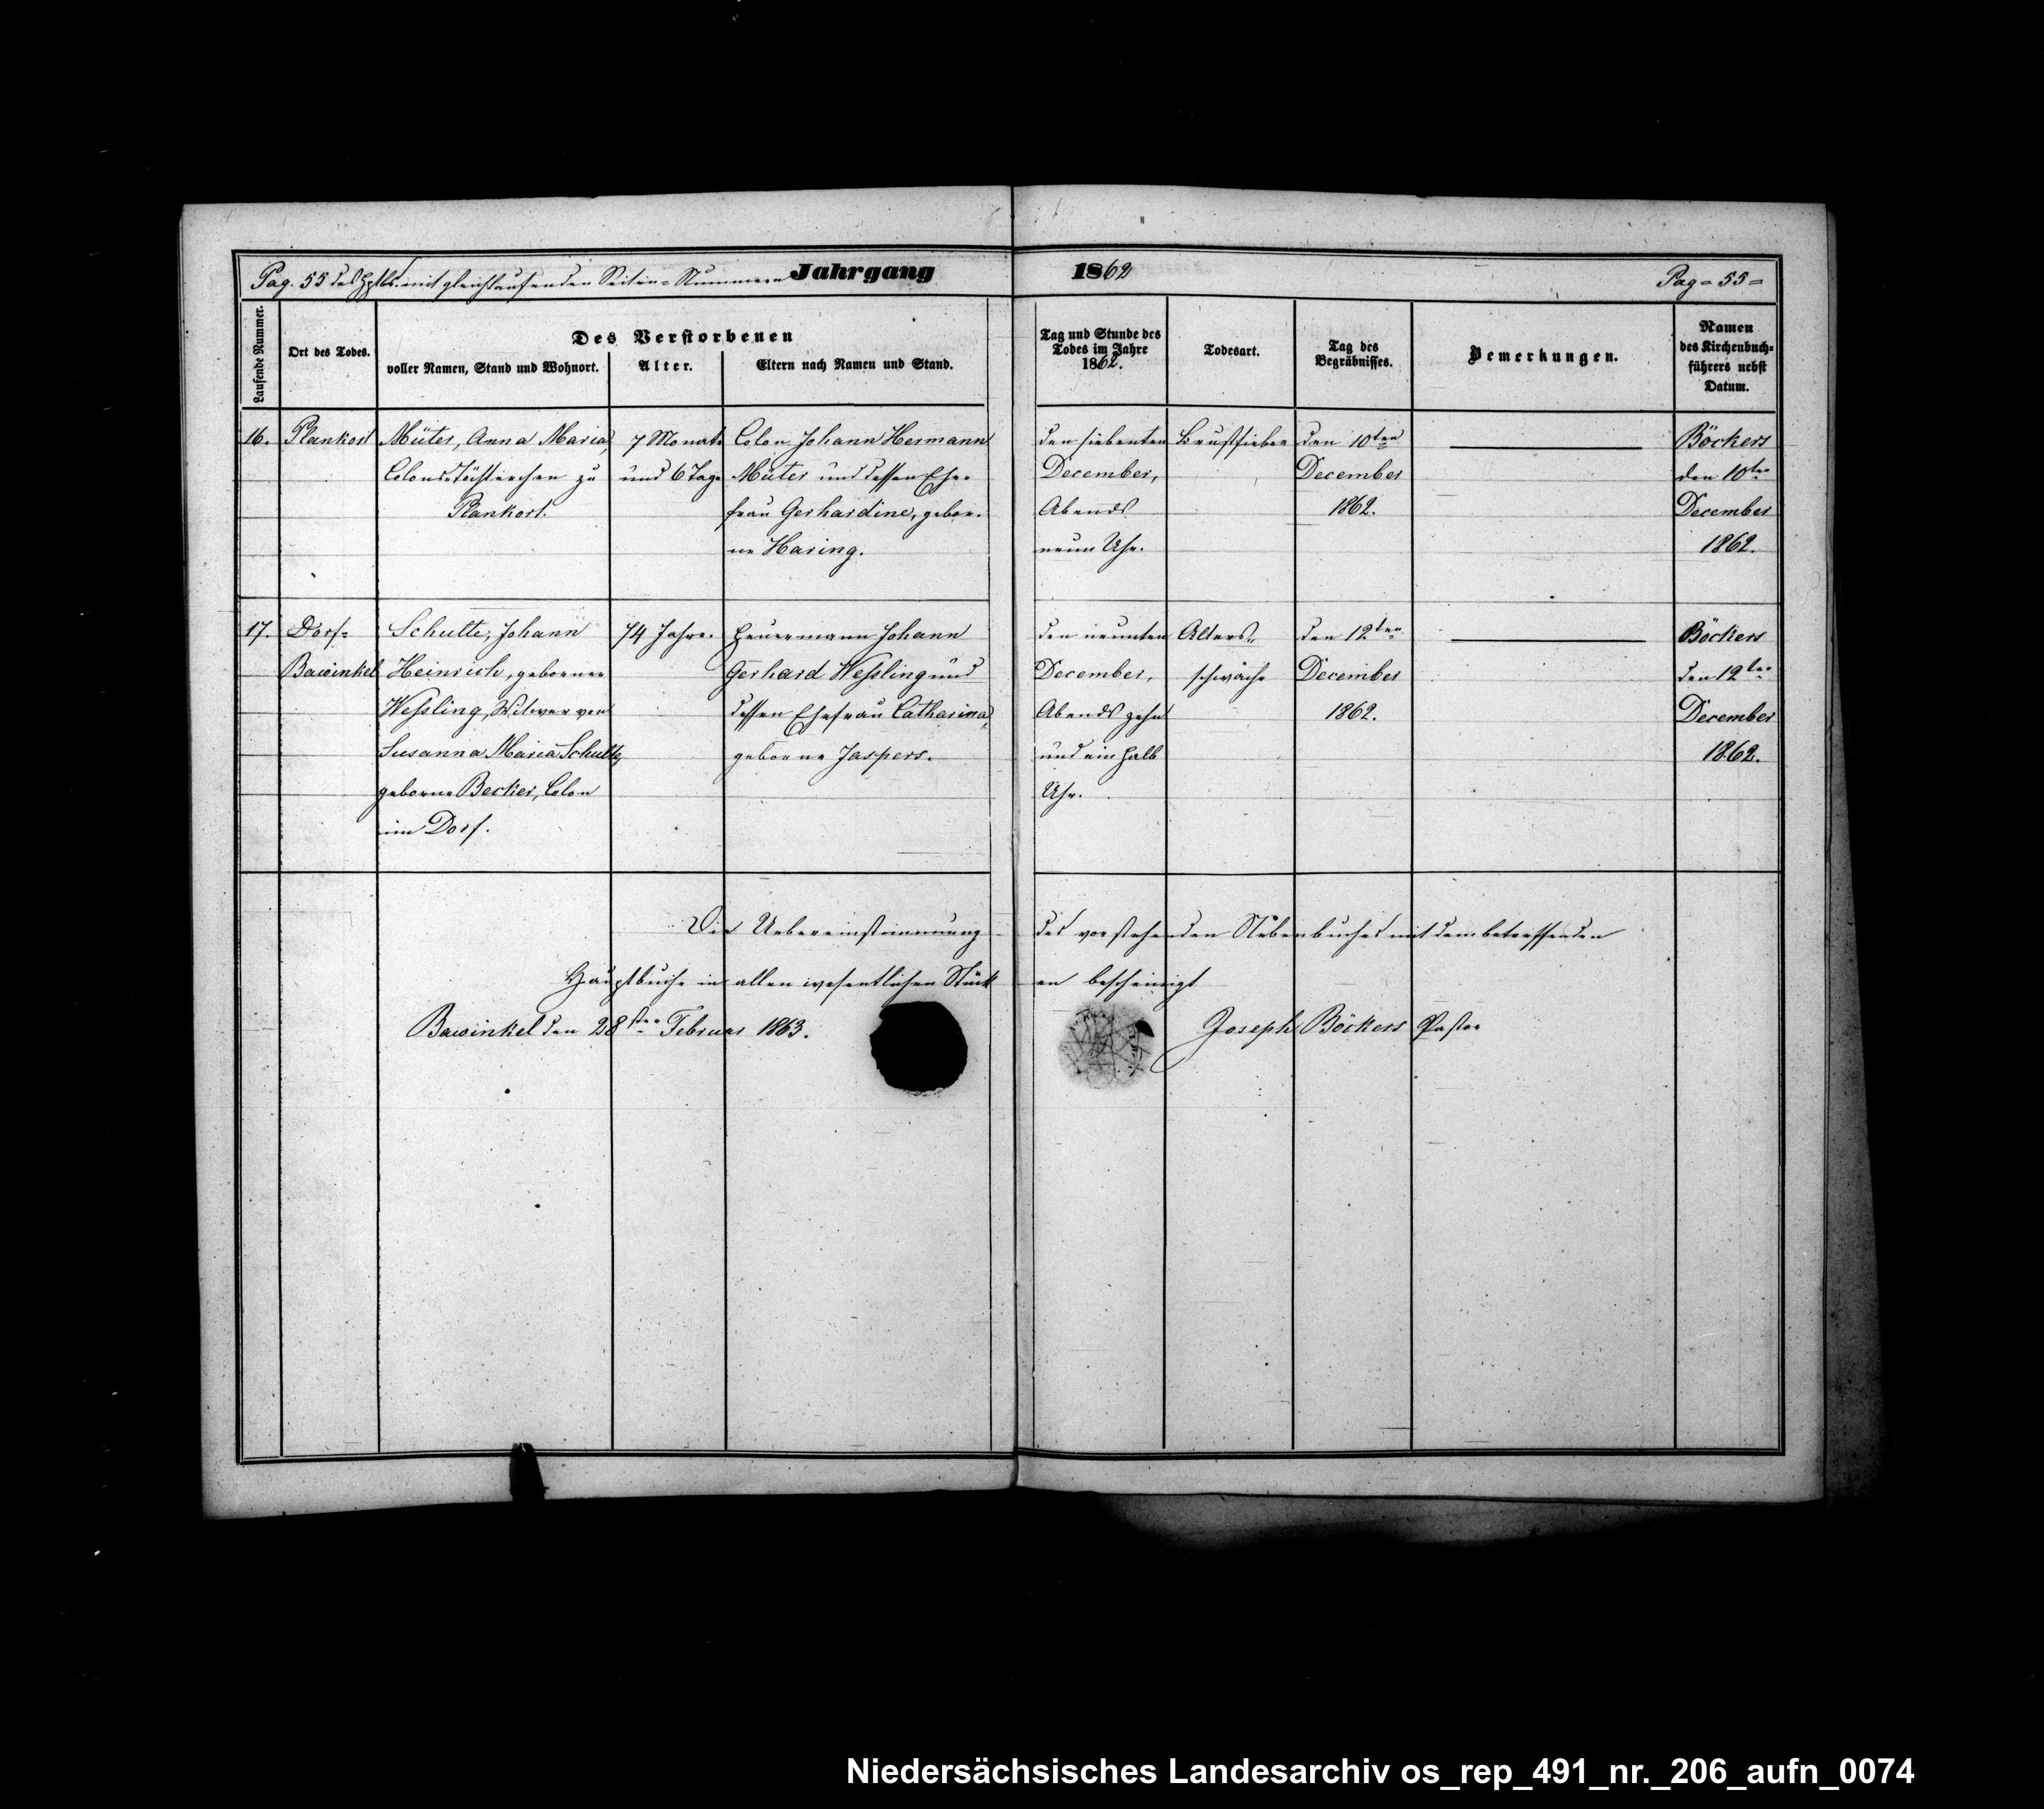 Pag. 55 des Hptbs. mit gleichlaufenden Seiten-Nummern Jahrgang 1862 Pag = 55 =
Laufende Nummer.
Ort des Todes.
Des Verstorbenen
voller Namen, Stand und Wohnort.
Alter.
Eltern nach Namen und Stand.
Tag und Stunde des
Todes im Jahre
1862.
Todesart.
Tag des
Begräbnisses.
Bemerkungen.
Namen
des Kirchenbuch=
führers nebst
Datum.
16.
Plankort
Müter, Anna Maria,
Colons Töchterchen zu
Plankort.
7 Monate
und 6 Tage
Colon Johann Hermann
Müter und dessen Ehe-
frau Gerhardine, gebor-
ne Haring.
den siebenten
December,
Abends
neun Uhr.
Brustfieber
den 10ten
December
1862.
Böckers
den 10ten
December
1862.
17.
Dorf=
Bawinkel
Schulte, Johann
Heinrich, geborner
Weßling, Witwer von
Susanna Maria Schulte,
geborne Becker, Colon
im Dorf.
74 Jahre.
Heuermann Johann
Gerhard Weßling und
dessen Ehefrau Catharina,
geborne Jaspers.
den neunten
December,
Abends zehn
und ein halb
Uhr.
Alters-
schwäche
den 12ten
December
1862.
Böckers
den 12ten
December
1862.
Die Uebereinstimmung des vorstehenden Nebenbuches mit dem betreffenden
Hauptbuche in allen wesentlichen Stücken bescheinigt
Bawinkel den 28sten Februar 1863. Joseph Böckers Pastor
Niedersächsisches Landesarchiv os_rep_491_nr._206_aufn_0074